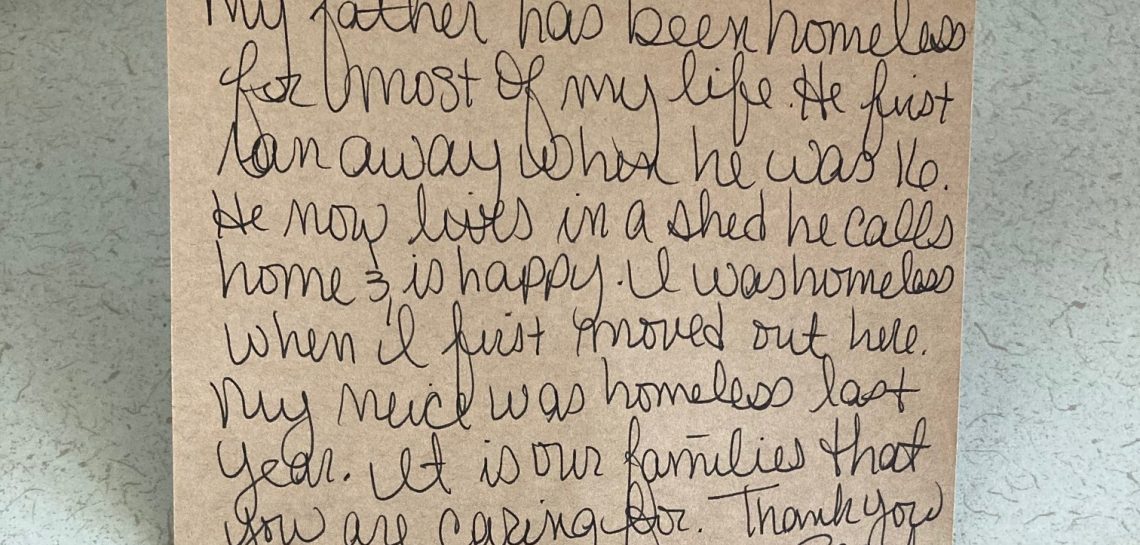 My father has been homeless
for most of my life. He first
ran away when he was 16.
He now lives in a shed he calls
home & is happy. I was homeless
when I first moved out here.
My neice was homeless last
year. It is our families that
you are caring for. Thank you